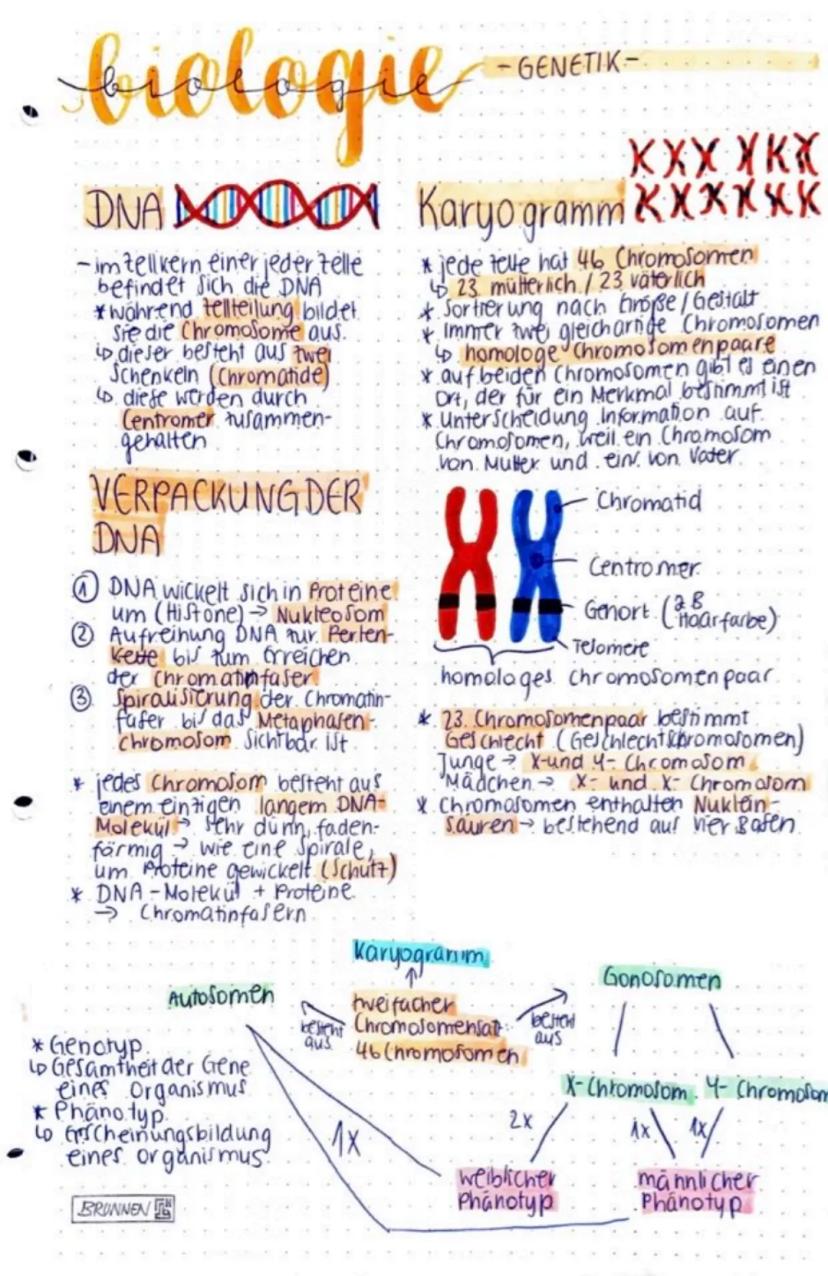 biologie
biologie
- GENETIK -
DNA
- im Zellkern einer jeder Zelle
befindet sich die DNA
* während Zellteilung bildet
sie die Chromosome aus.
↳ dieser besteht aus zwei
Schenkeln (Chromatide)
↳ diese werden durch
Centromer zusammen-
gehalten
VERPACKUNG DER
DNA
① DNA wickelt sich in Proteine
um (Histone) → Nukleosom
② Aufreihung DNA zur Perlen-
kette bis zum Erreichen
der Chromatinfaser
③ Spiralisierung der Chromatin-
faser bis das Metaphasen-
chromosom sichtbar ist
* jedes Chromosom besteht aus
einem einzigen langem DNA-
Molekül → sehr dünn, faden-
förmig → wie eine Spirale
um Proteine gewickelt (Schutz)
* DNA-Molekül + Proteine
→ Chromatinfasern
Karyogramm
* jede Zelle hat 46 Chromosomen
↳ 23 mütterlich / 23 väterlich
* Sortierung nach Größe / Gestalt
* Immer zwei gleichartige Chromosomen
↳ homologe Chromosomenpaare
* auf beiden Chromosomen gibt es einen
Ort, der für ein Merkmal bestimmt ist
* Unterscheidung Information auf
Chromosomen, weil ein Chromosom
von Mutter und eins von Vater
Chromatid
Centromer
Genort (z B
Haarfarbe)
Telomere
homologes Chromosomenpaar
* 23. Chromosomenpaar bestimmt
Geschlecht (Geschlechtschromosomen)
Junge → X-und Y- Chromosom
Mädchen → X- und X- Chromosom
* Chromosomen enthalten Nuklein-
säuren → bestehend aus vier Basen
Karyogramm
Autosomen
besteht
aus
zweifacher
Chromosomensatz
46 Chromosomen
besteht
aus
Gonosomen
* Genotyp
↳ Gesamtheit der Gene
eines Organismus
* Phänotyp
↳ Erscheinungsbildung
eines Organismus
X-Chromosom
Y-Chromosom
1x
2x
1x
1x
weiblicher
Phänotyp
männlicher
Phänotyp
BRUNNEN